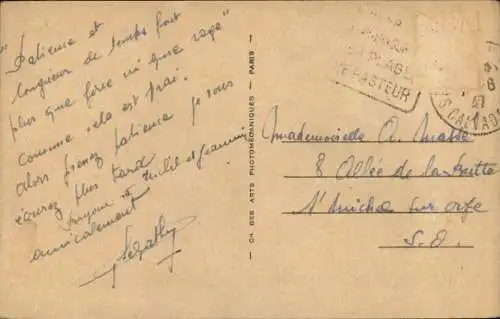 "Patience et
longueur de temps font
plus que force ni que rage"
comme cela est vrai.
Alors prenez patience je vous
écurez plus tard
Michel et Jeannine
amicalement
CIE DES ARTS PHOTOMÉCANIQUES - PARIS
PLAGE
PASTEUR
CALVADOS
Mademoiselle A. Mabbe
8 Allée de la butte
St Michel sur orge
S.O.